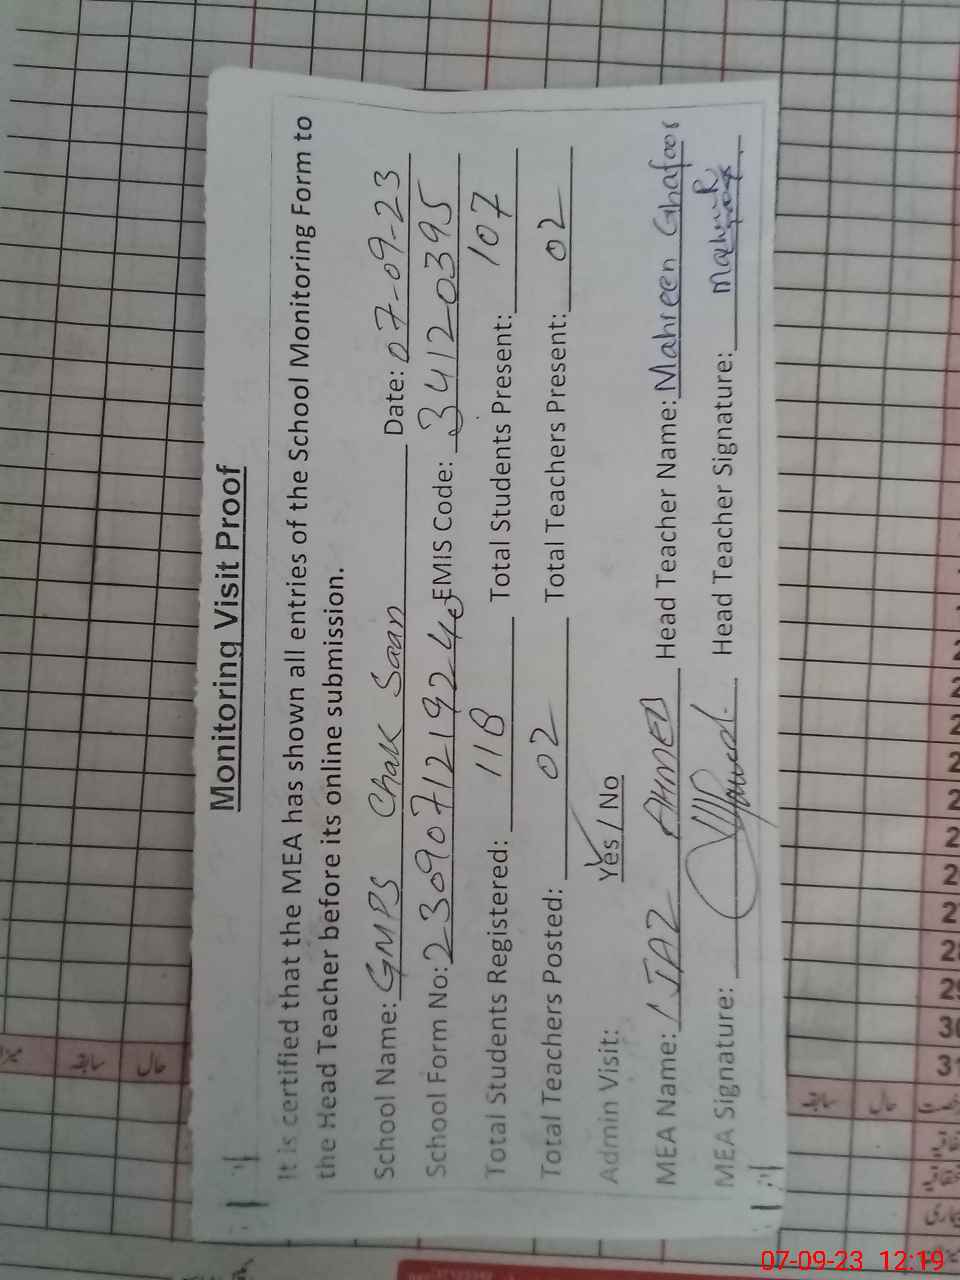 Monitoring Visit Proof
It is certified that the MEA has shown all entries of the School Monitoring Form to
the Head Teacher before its online submission.
School Name: GMPS Chak Saan Date: 07-09-23
School Form No: 230907121924 EMIS Code: 34120395
Total Students Registered: 118 Total Students Present: 107
Total Teachers Posted: 02 Total Teachers Present: 02
Admin Visit: Yes / No
MEA Name: IJAZ AHMED Head Teacher Name: Mahreen Ghafoor
MEA Signature: Head Teacher Signature:
2
2
2
2
2
2
2
29
30
31
حال
سابقہ
حال
سابقہ
07-09-23 12:19